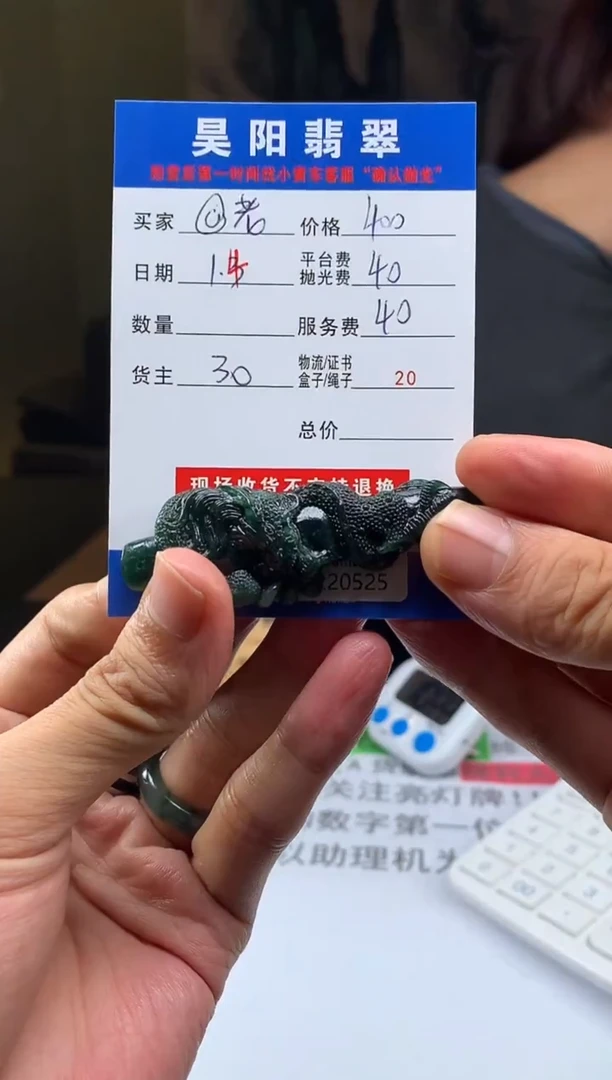 昊阳翡翠
买家 老 价格 400
日期 1.4 平台费 抛光费 40
数量 服务费 40
货主 30 物流/证书 盒子/绳子 20
总价
现场收货不支持退换
20525
关注亮灯牌!
数字第一位
以助理机为